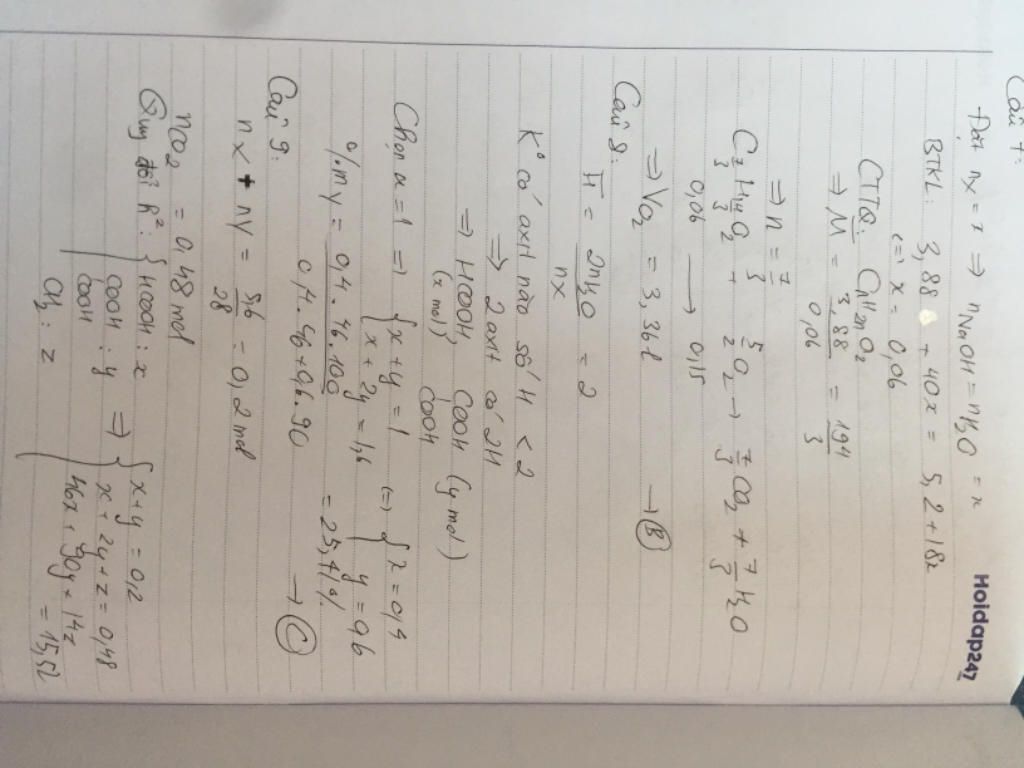 Câu 7:
Đặt nX = x ⇒ nNaOH = nH2O = x
BTKL: 3,88 + 40x = 5,2 + 18x
⇔ x = 0,06
CTTQ: CnH2nO2
⇒ M = 3,88 / 0,06 = 194 / 3
⇒ n = 7/3
C7/3 H14/3 O2 + 5/2 O2 → 7/3 CO2 + 7/3 H2O
0,06 → 0,15
⇒ VO2 = 3,36l → B
Câu 8:
H̄ = 2nH2O / nX = 2
K° có axit nào số H < 2
⇒ 2 axit có 2H
⇒ HCOOH, COOH (y mol)
(x mol) COOH
Chọn a = 1 ⇒ { x + y = 1 ⇔ { x = 0,4
x + 2y = 1,6 y = 0,6
%mY = 0,4.46.100 / 0,4.46+0,6.90 = 25,41% → C
Câu 9:
nX + nY = 5,6 / 28 = 0,2 mol
nCO2 = 0,48 mol
Quy đổi h²: { HCOOH : x ⇒ { x + y = 0,2
COOH : y x + 2y + z = 0,48
COOH 46x + 90y + 14z
CH2 : z = 15,52
Hoidap247